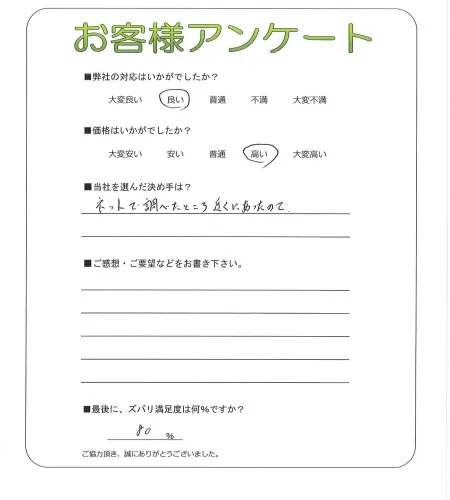 お客様アンケート
■弊社の対応はいかがでしたか？
大変良い 良い 普通 不満 大変不満
■価格はいかがでしたか？
大変安い 安い 普通 高い 大変高い
■当社を選んだ決め手は？
ネットで調べたところ近くにあったので
■ご感想・ご要望などをお書き下さい。
■最後に、ズバリ満足度は何％ですか？
80 ％
ご協力頂き、誠にありがとうございました。